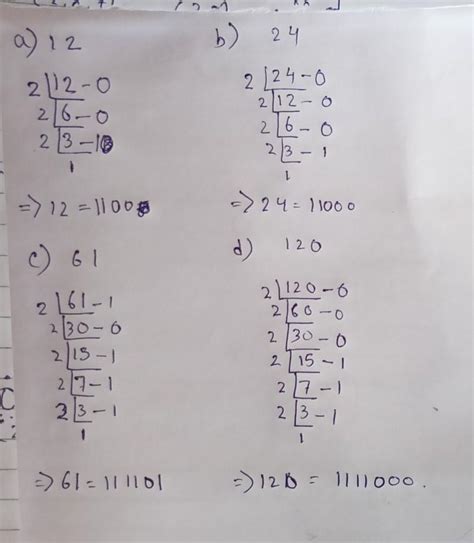 a) 12
2 | 12 - 0
2 | 6 - 0
2 | 3 - 1
1
=> 12 = 1100
b) 24
2 | 24 - 0
2 | 12 - 0
2 | 6 - 0
2 | 3 - 1
1
=> 24 = 11000
c) 61
2 | 61 - 1
2 | 30 - 0
2 | 15 - 1
2 | 7 - 1
2 | 3 - 1
1
=> 61 = 111101
d) 120
2 | 120 - 0
2 | 60 - 0
2 | 30 - 0
2 | 15 - 1
2 | 7 - 1
2 | 3 - 1
1
=> 120 = 1111000.